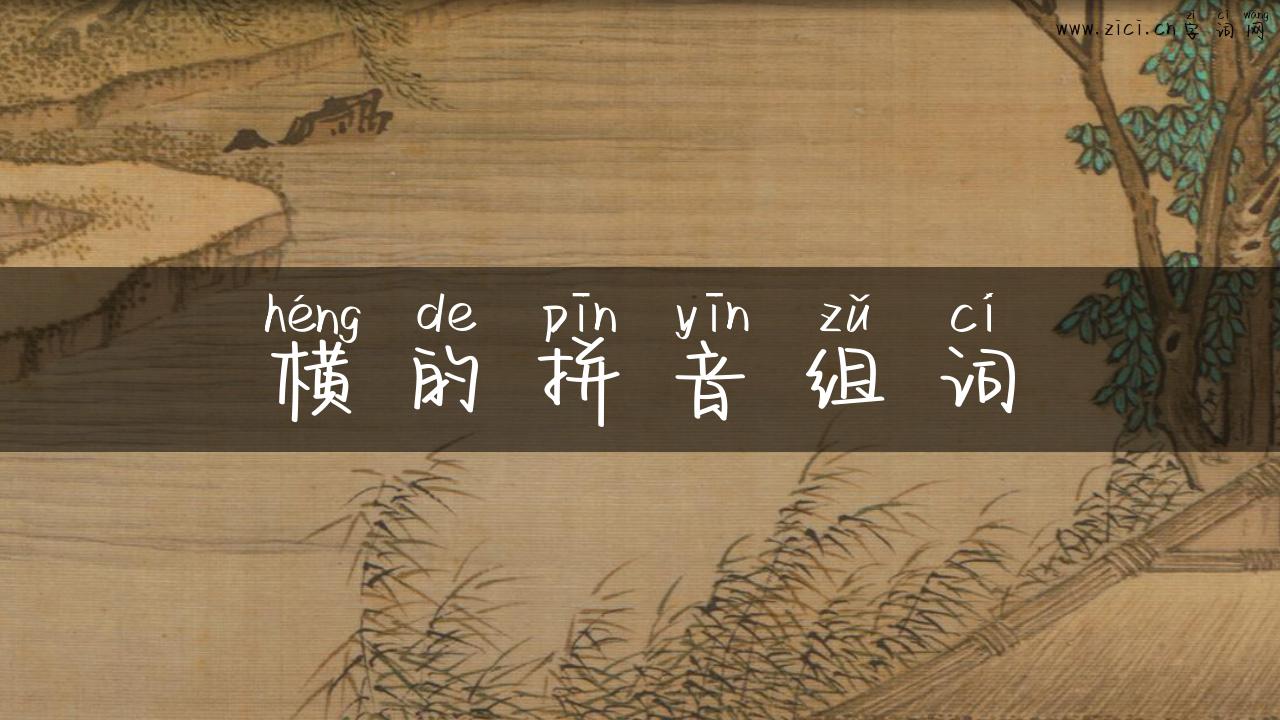 zì cí wǎng
www.zici.cn字词网
héng de pīn yīn zǔ cí
横的拼音组词